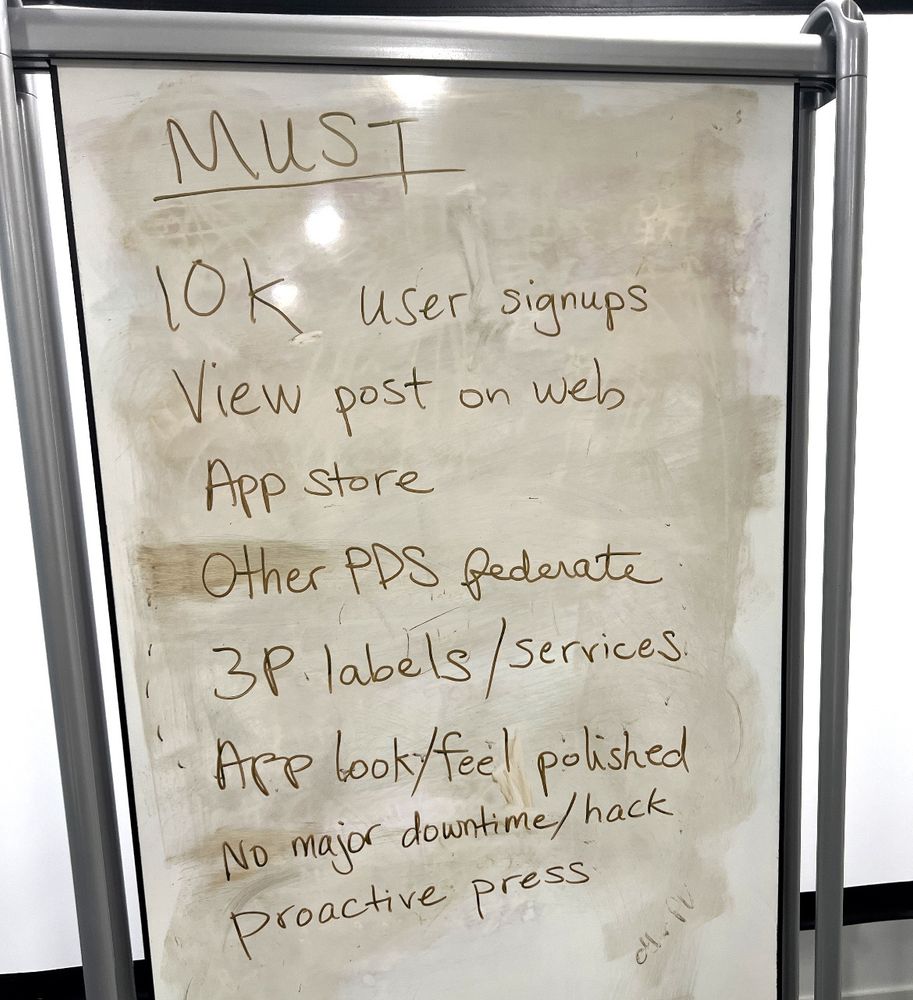 MUST
10k user signups
View post on web
App store
Other PDS federate
3P labels/services
App look/feel polished
No major downtime/hack
proactive press